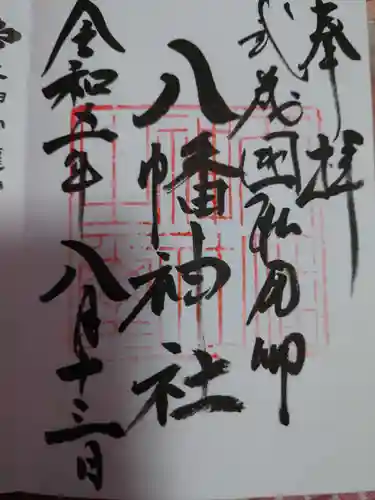 奉拝
武蔵国
八幡神社
令和五年八月十三日